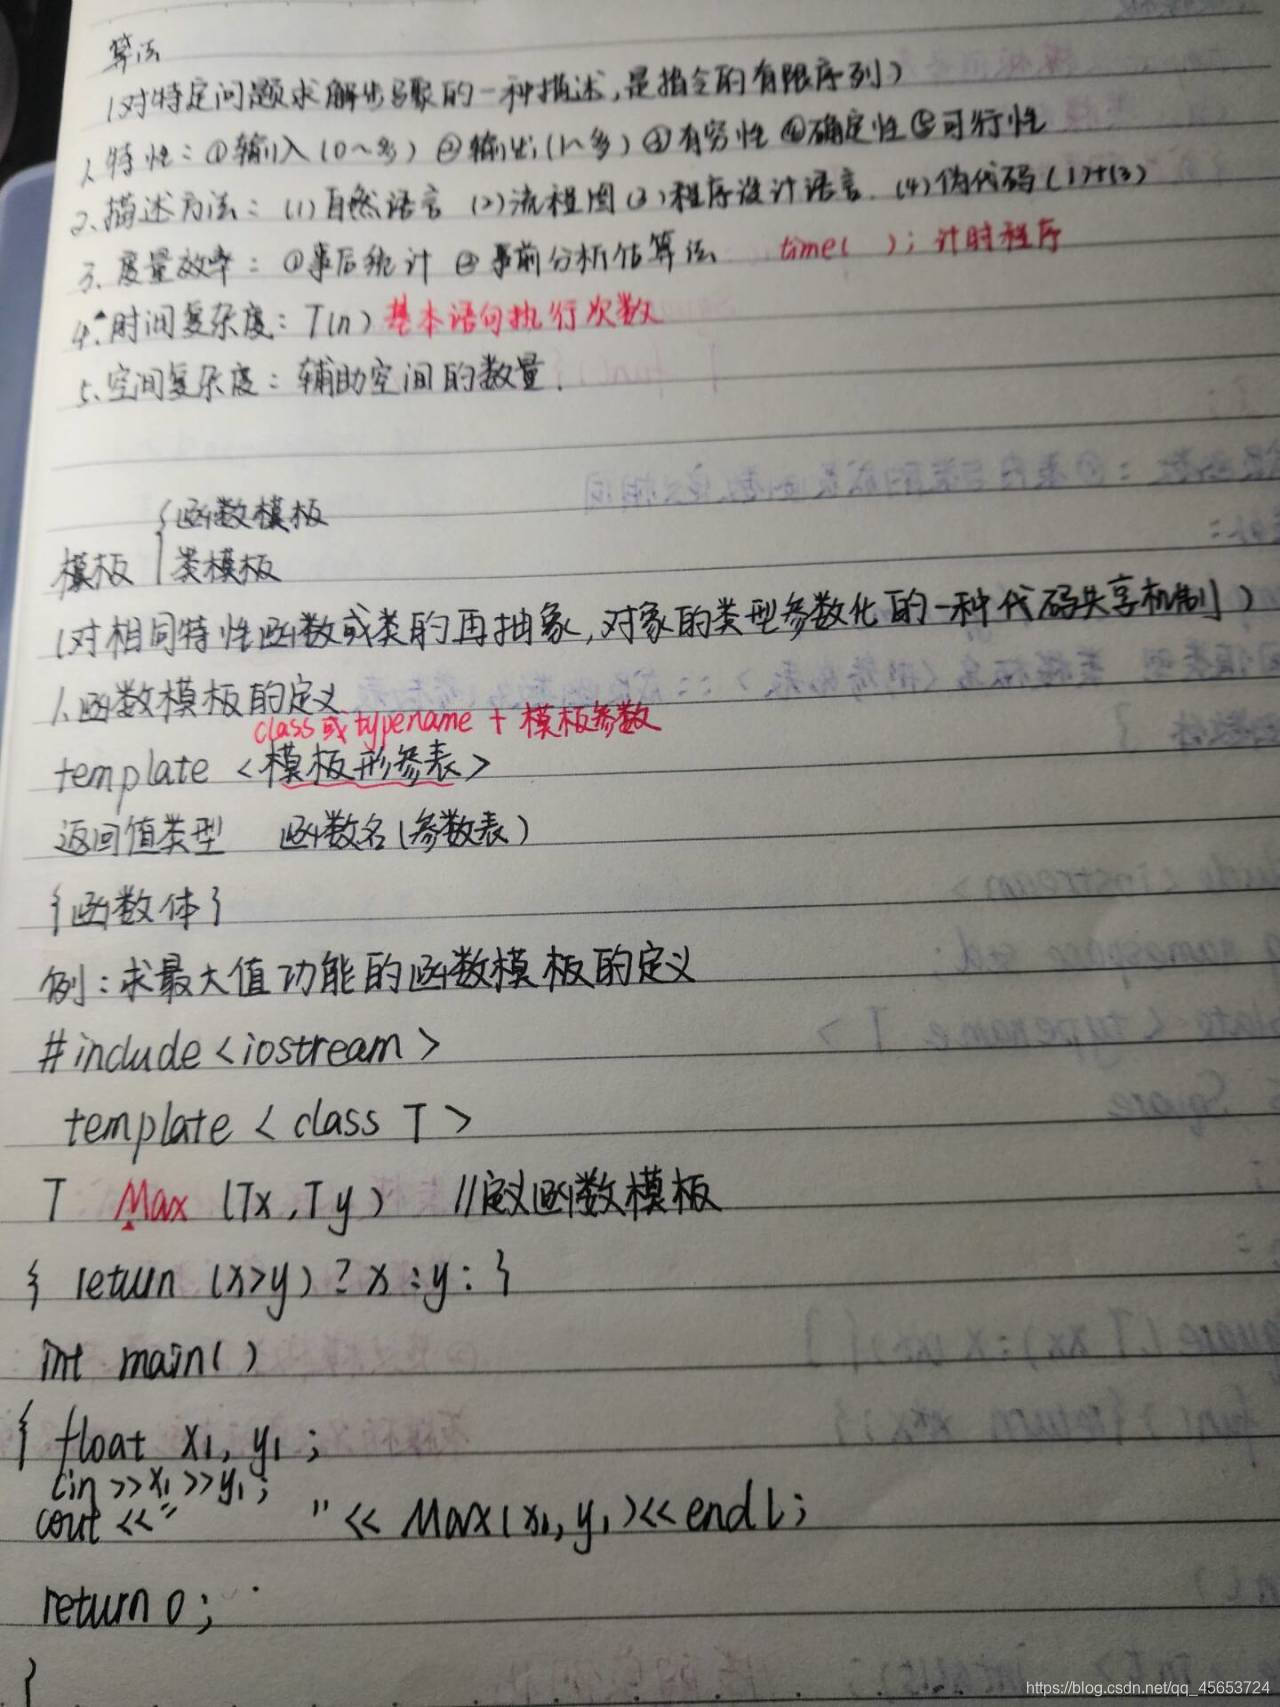 算法
(对特定问题求解步骤的一种描述,是指令的有限序列)
1.特性:①输入(0~多) ②输出(1~多) ③有穷性 ④确定性 ⑤可行性
2.描述方法:(1)自然语言 (2)流程图 (3)程序设计语言. (4)伪代码(1)+(3)
3.度量效率:①事后统计 ②事前分析估算法 time( ); 计时程序
4.*时间复杂度:T(n) 基本语句执行次数
5.空间复杂度:辅助空间的数量.
{函数模板
模板 类模板
(对相同特性函数或类的再抽象,对象的类型参数化的一种代码共享机制)
1.函数模板的定义
class或typename + 模板参数
template <模板形参表>
返回值类型 函数名(参数表)
{函数体}
例:求最大值功能的函数模板的定义
#include<iostream>
template < class T >
T Max (Tx,Ty) //定义函数模板
{ return (x>y)?x:y; }
int main()
{ float x1, y1;
cin>>x1>>y1;
cout <<" "<< Max(x1,y1)<<endl;
return 0;
}
https://blog.csdn.net/qq_45653724